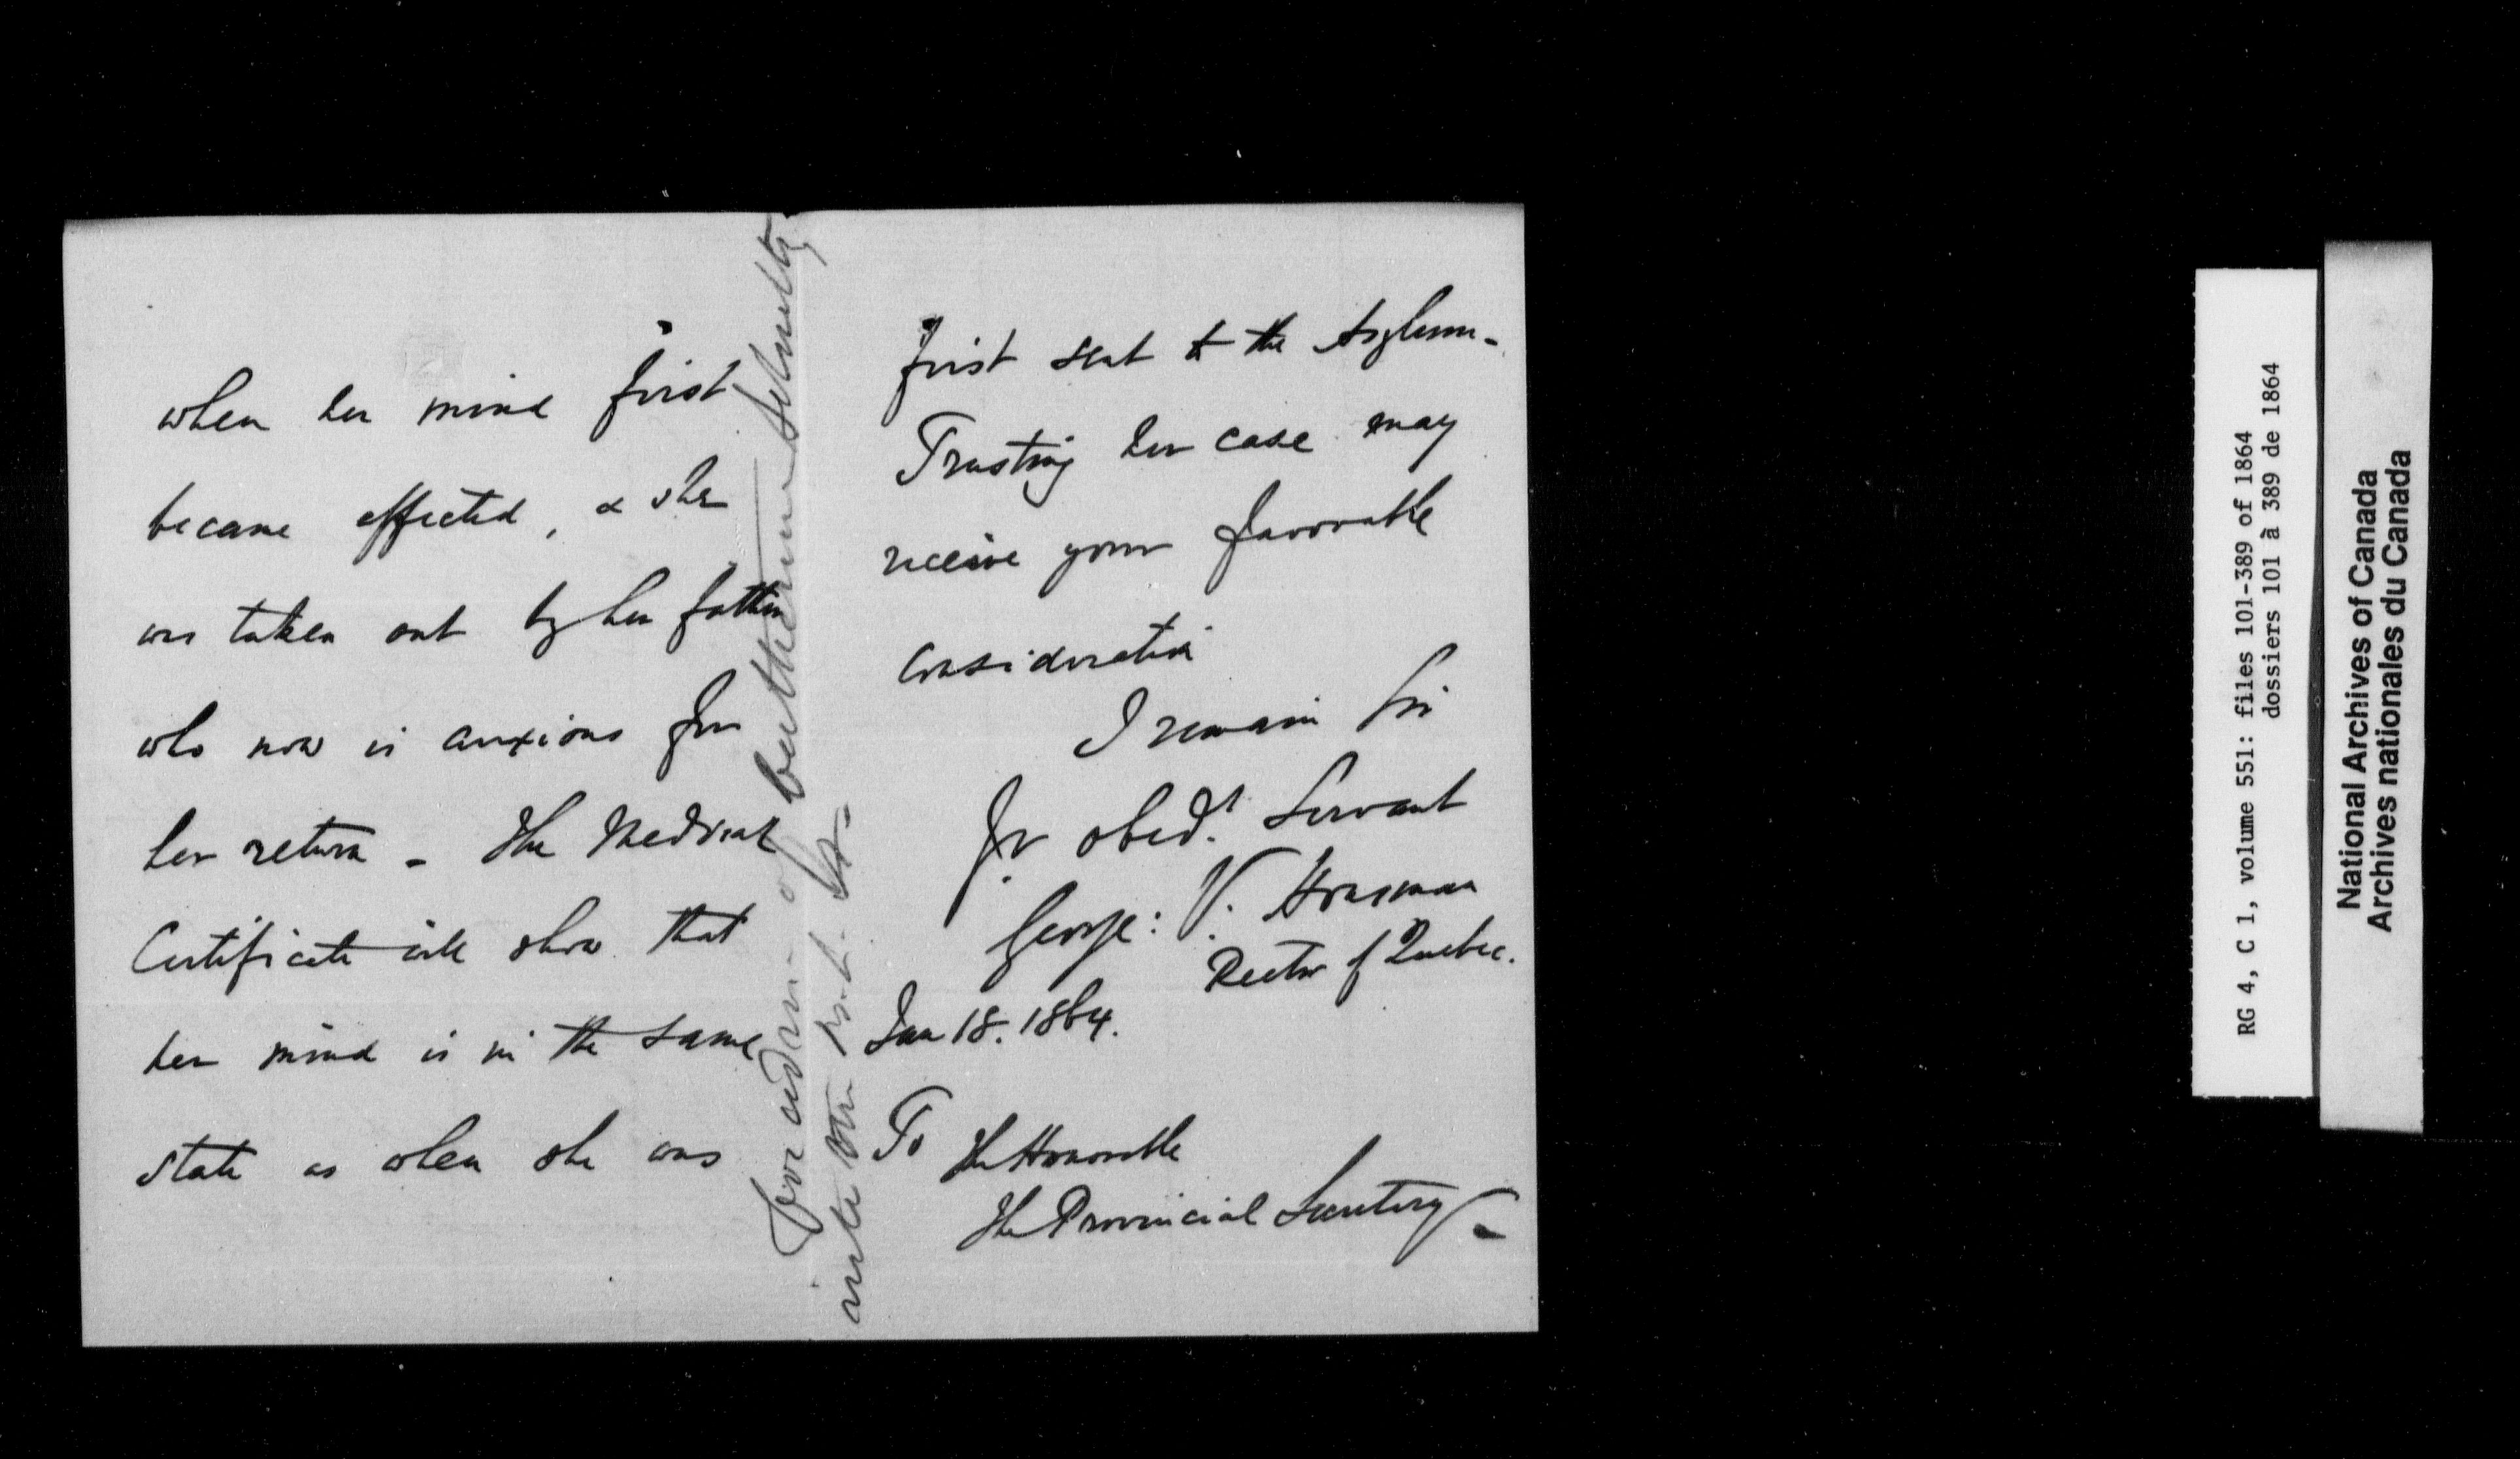 when her mind first
became effected, & she
was taken out by her father
who now is anxious for
her return - The Medical
Certificate will show that
her mind is in the same
state as when she was
first sent to the Asylum -
Trusting her case may
receive your favorable
consideration
I remain Sir
Yr obedt. Servant
George: V. Housman
Rector of Quebec.
Jan 18. 1864.
To The Honorable
The Provincial Secretary
For admn. of Catherine Schmeltz
into the
RG 4, C 1, volume 551: files 101-389 of 1864
dossiers 101 à 389 de 1864
National Archives of Canada
Archives nationales du Canada